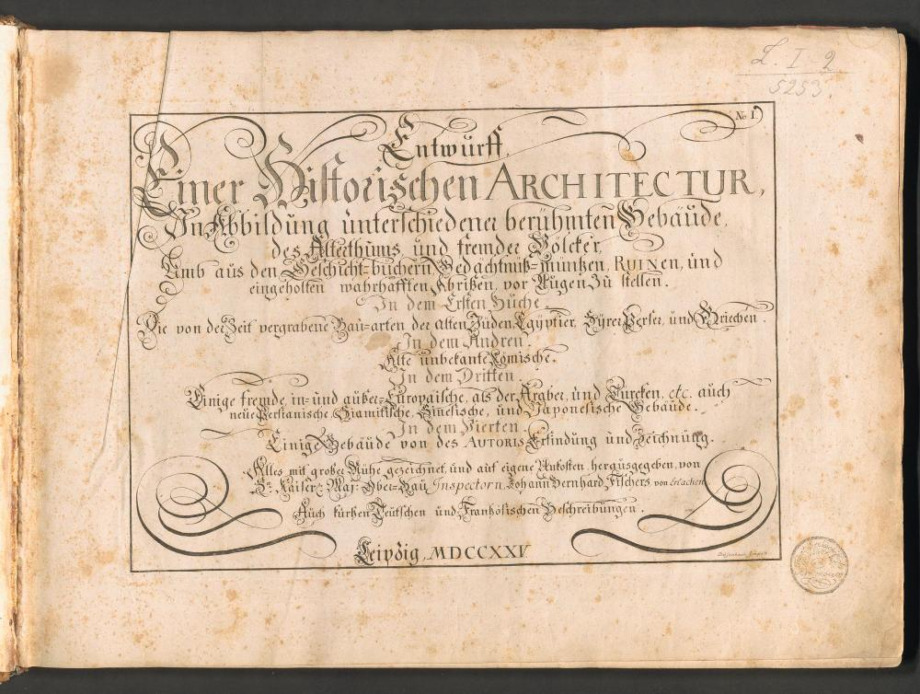 L. I. 2
5253.
No I.
Entwurff
Einer Historischen ARCHITECTUR,
In Abbildung unterschiedener berühmten Gebäude,
des Alterthums und fremder Völcker,
Umb aus den Geschicht-büchern, Gedächtnüß-müntzen, RUINEN, und
eingeholten wahrhafften Abrißen, vor Augen zu stellen.
In dem Ersten Buche.
Die von der Zeit vergrabene Bau-arten der alten Jüden, Egÿptier, Sÿrer, Perser, und Griechen.
In dem Andren.
Alte unbekante Römische.
In dem Dritten.
Einige fremde, in- und außer-Europäische, als der Araber, und Türcken, etc. auch
neüe Persianische, Siamitische, Sinesische, und Japonesische Gebäude.
In dem Vierten.
Einige Gebäude von des AUTORIS Erfindung und Zeichnung.
Alles mit großer Mühe gezeichnet, und auf eigene Unkosten, herausgegeben, von
Sr. Kaiserl. Maj: Ober-Bau Inspectorn, Johann Bernhard Fischers von Erlachen
Auch kurtzen Teutschen und Frantzösischen Beschreibungen.
Leipzig, MDCCXXV